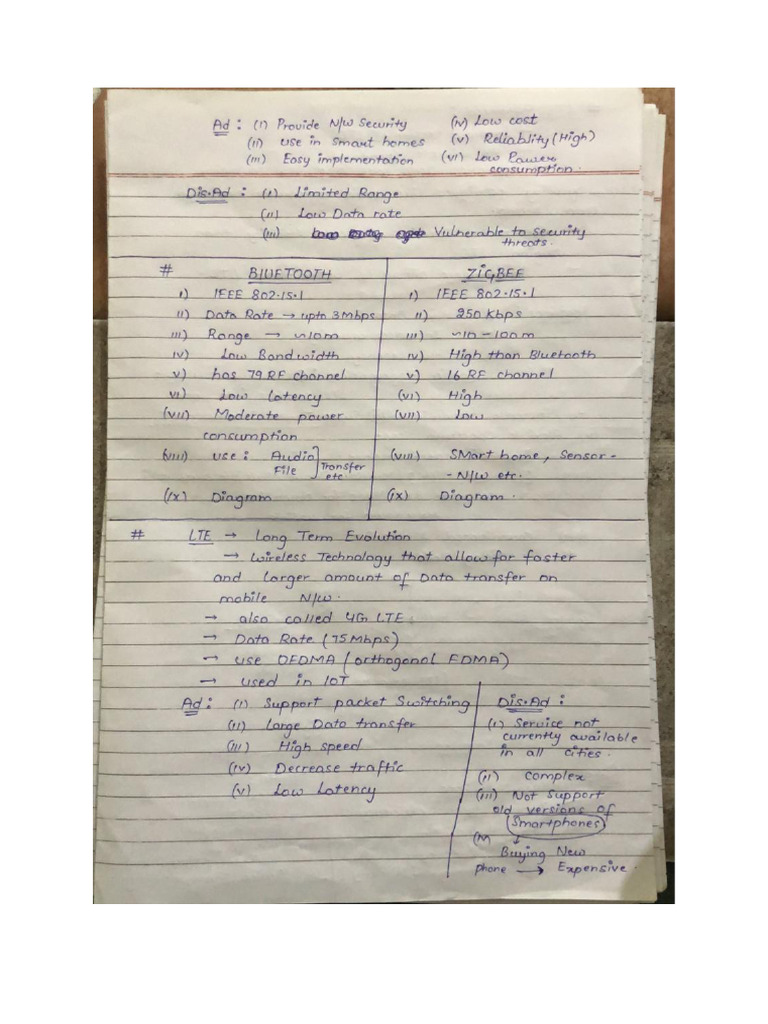 Ad : (i) Provide N/W Security (iv) Low cost
(ii) use in smart homes (v) Reliablity (High)
(iii) Easy implementation (vi) Low Power
consumption.
Dis.Ad : (i) Limited Range
(ii) Low Data rate
(iii) Vulnerable to security
threats.
# BLUETOOTH ZIGBEE
i) IEEE 802.15.1 i) IEEE 802.15.1
ii) Data Rate → upto 3 Mbps ii) 250 Kbps
iii) Range → ~10m iii) ~10-100m
iv) Low Bandwidth iv) High than Bluetooth
v) has 79 RF channel v) 16 RF channel
vi) Low Latency (vi) High
(vii) Moderate power (vii) Low
consumption
(viii) use : Audio (viii) SMart home, Sensor-
File Transfer etc. - N/W etc.
(ix) Diagram (ix) Diagram.
# LTE → Long Term Evolution
→ Wireless Technology that allow for faster
and larger amount of Data transfer on
mobile N/W.
→ also called 4G LTE
→ Data Rate (75 Mbps)
→ use OFDMA (orthogonal FDMA)
→ used in IOT
Ad : (i) Support packet Switching
(ii) Large Data transfer
(iii) High speed
(iv) Decrease traffic
(v) Low Latency
Dis.Ad :
(i) Service not
currently available
in all cities.
(ii) complex
(iii) Not Support
old versions of
Smartphones
(iv) ↓
Buying New
phone → Expensive.